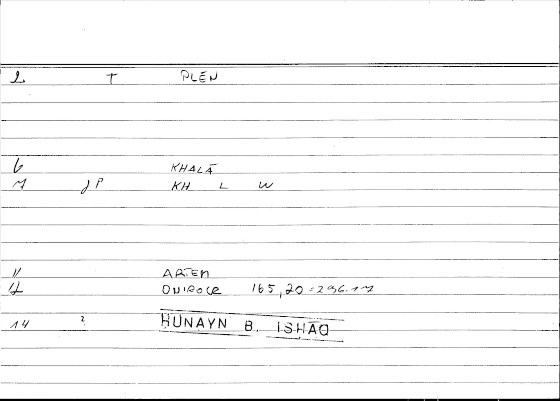 2 T PLEN
6 KHALĀ
7 JP KH L W
11 ARTEM
12 ONIROCR 165,20 = 296.17
14 2 HUNAYN B. ISHĀQ